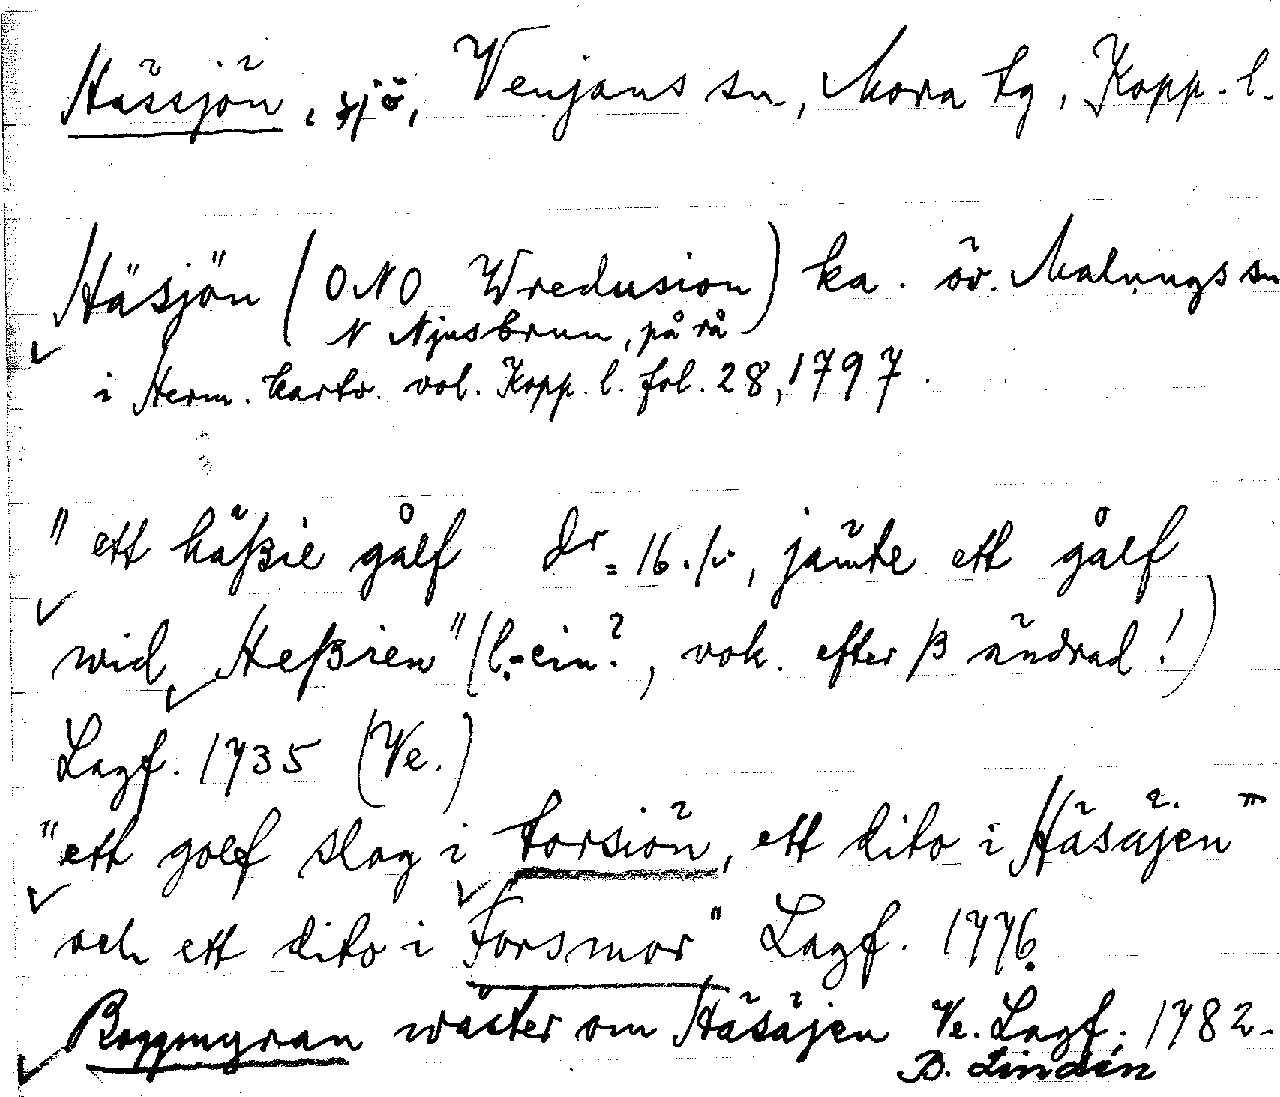 Hässjön, sjö, Venjans sn, Mora tg, Kopp. l.
Häsjön (ONO Wredusion) ka. öv. Malungs sn
N Njusbrun, på rå
i Herm. kartv. vol. Kopp. l. fol. 28, 1797.
" ett häßie gålf dr = 16. /., jämte ett gålf
wid Heßien" (l. -ein?, vok. efter ß ändrad!)
Lagf. 1735 (Ve.)
"ett golf slag i torsiön, ett dito i Häsäjen
och ett dito i Forsmor" Lagf. 1776.
Roggmyran wäster om Häsäjen Ve. Lagf. 1782.
B. Lindén